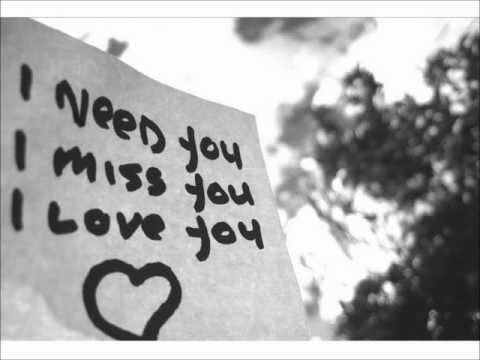 I NeeD you
I miss you
I Love you